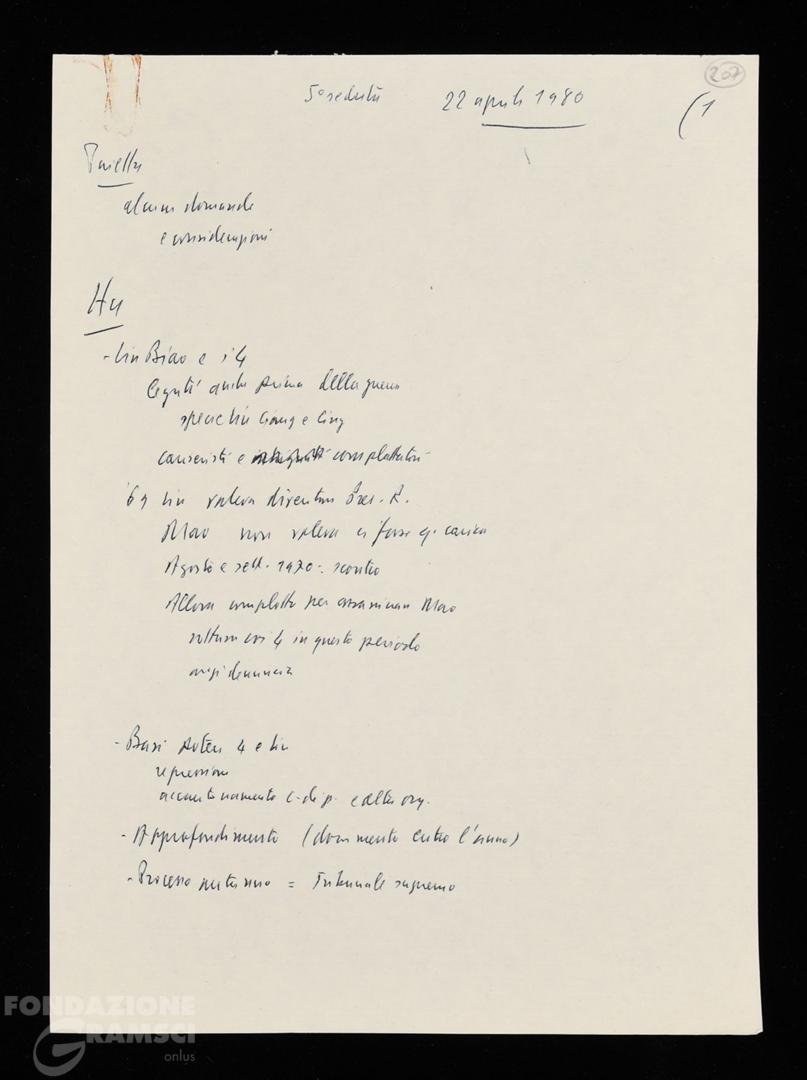 207
5° seduta 22 aprile 1980 (1
Pajetta
alcune domande
e considerazioni
Hu
- Lin Biao e i 4
legati anche prima della guerra
specie Lin Ciang e Cing
carrieristi e complottatori
'69 Lin voleva diventare Pres. R.
Mao non voleva ci fosse q. carica
Agosto e sett. 1970 - scontro
Allora complotto per assassinare Mao
rottura coi 4 in questo periodo
anzi denuncia
- Basi potere 4 e Lin
repressione
accantonamento e altri org.
- Approfondimento (documento entro l'anno)
- Processo autunno = Tribunale supremo
FONDAZIONE
GRAMSCI
onlus